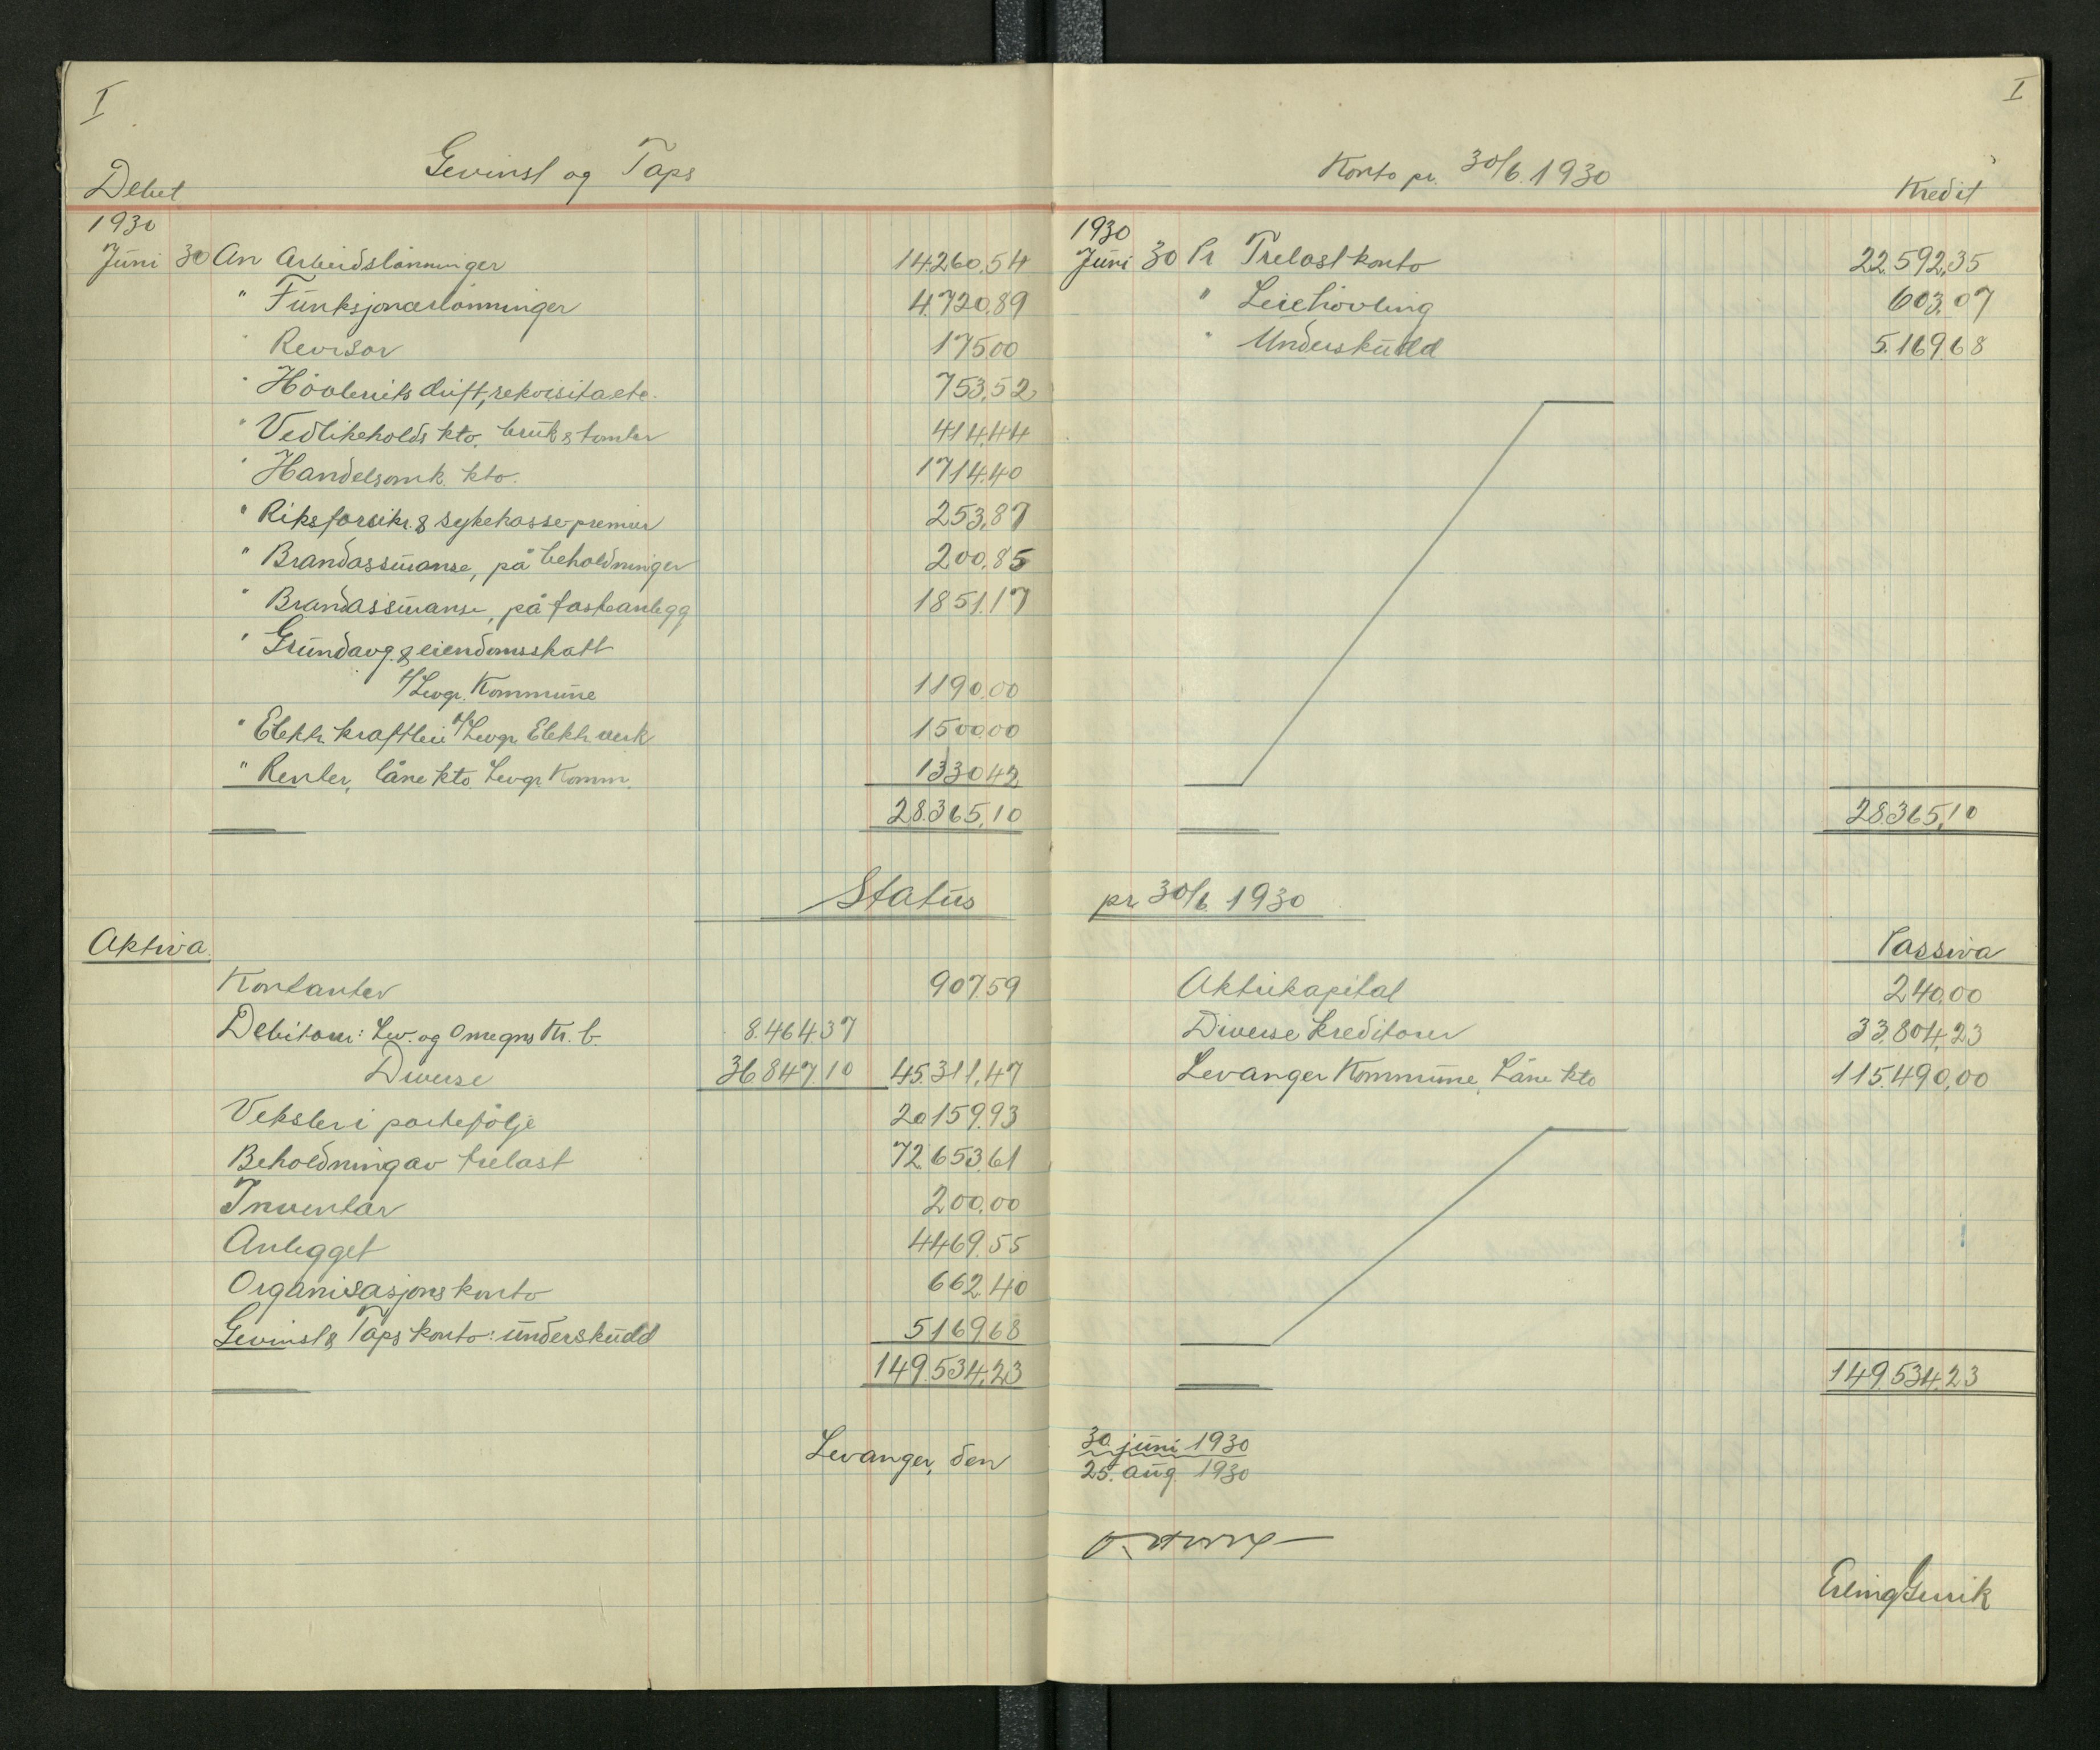 I
Gevinst og Taps
Debet
1930
Juni 30 An Arbeidslønninger 14.260,54
" Funksjonærlønninger 4.720,89
" Revisor 175,00
" Høvleriets drift, rekvisita etc. 753,52
" Vedlikeholds kto. bruk & tomter 414,44
" Handelsomk. kto. 1714,40
" Riksforsikr. & sykekassepremier 253,87
" Brandassuranse, på beholdninger 200,85
" Brandassuranse, på faste anlegg 1851,17
" Grundavg. & eiendomsskatt
t/Levgr. Kommune 1190,00
" Elektr. kraftleie t/Levgr. Elektr. verk 1500,00
" Renter, låne kto. Levgr. Komm. 1330,42
28.365,10
Status
Aktiva.
Kontanter 907,59
Debitorer: Lev. og Omegns Kr. b. 8.464,37
Diverse 36.847,10 45.311,47
Veksler i portefølje 20.159,93
Beholdning av trelast 72.653,61
Inventar 200,00
Anlegget 4469,55
Organisasjonskonto 662,40
Gevinst & Taps konto: underskudd 5169,68
149.534,23
Levanger, den
I
Konto pr. 30/6. 1930
Kredit
1930
Juni 30 Pr Trelastkonto 22.592,35
" Leiehøvling 603,07
" Underskudd 5.169,68
28.365,10
pr. 30/6. 1930
Passiva
Aktiekapital 240,00
Diverse kreditorer 33.804,23
Levanger Kommune, Låne kto 115.490,00
149.534,23
30. juni 1930
25. aug. 1930
Erling